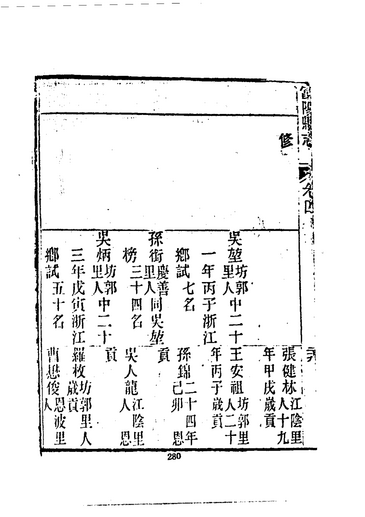 修
吳堃坊郭里人中二十
一年丙子浙江
鄉試七名
孫衙慶善里人同吳堃
榜三十四名
吳炳坊郭里人中二十
三年戊寅浙江
鄉試五十名
張健林江陰里人十九
年甲戌歲貢
王安祖坊郭里人二十
年丙子歲貢
孫錦二十四年己卯恩
貢
吳人龍江陰里人恩
貢
羅枚坊郭里人歲貢
曹懋俊恩波里人
280